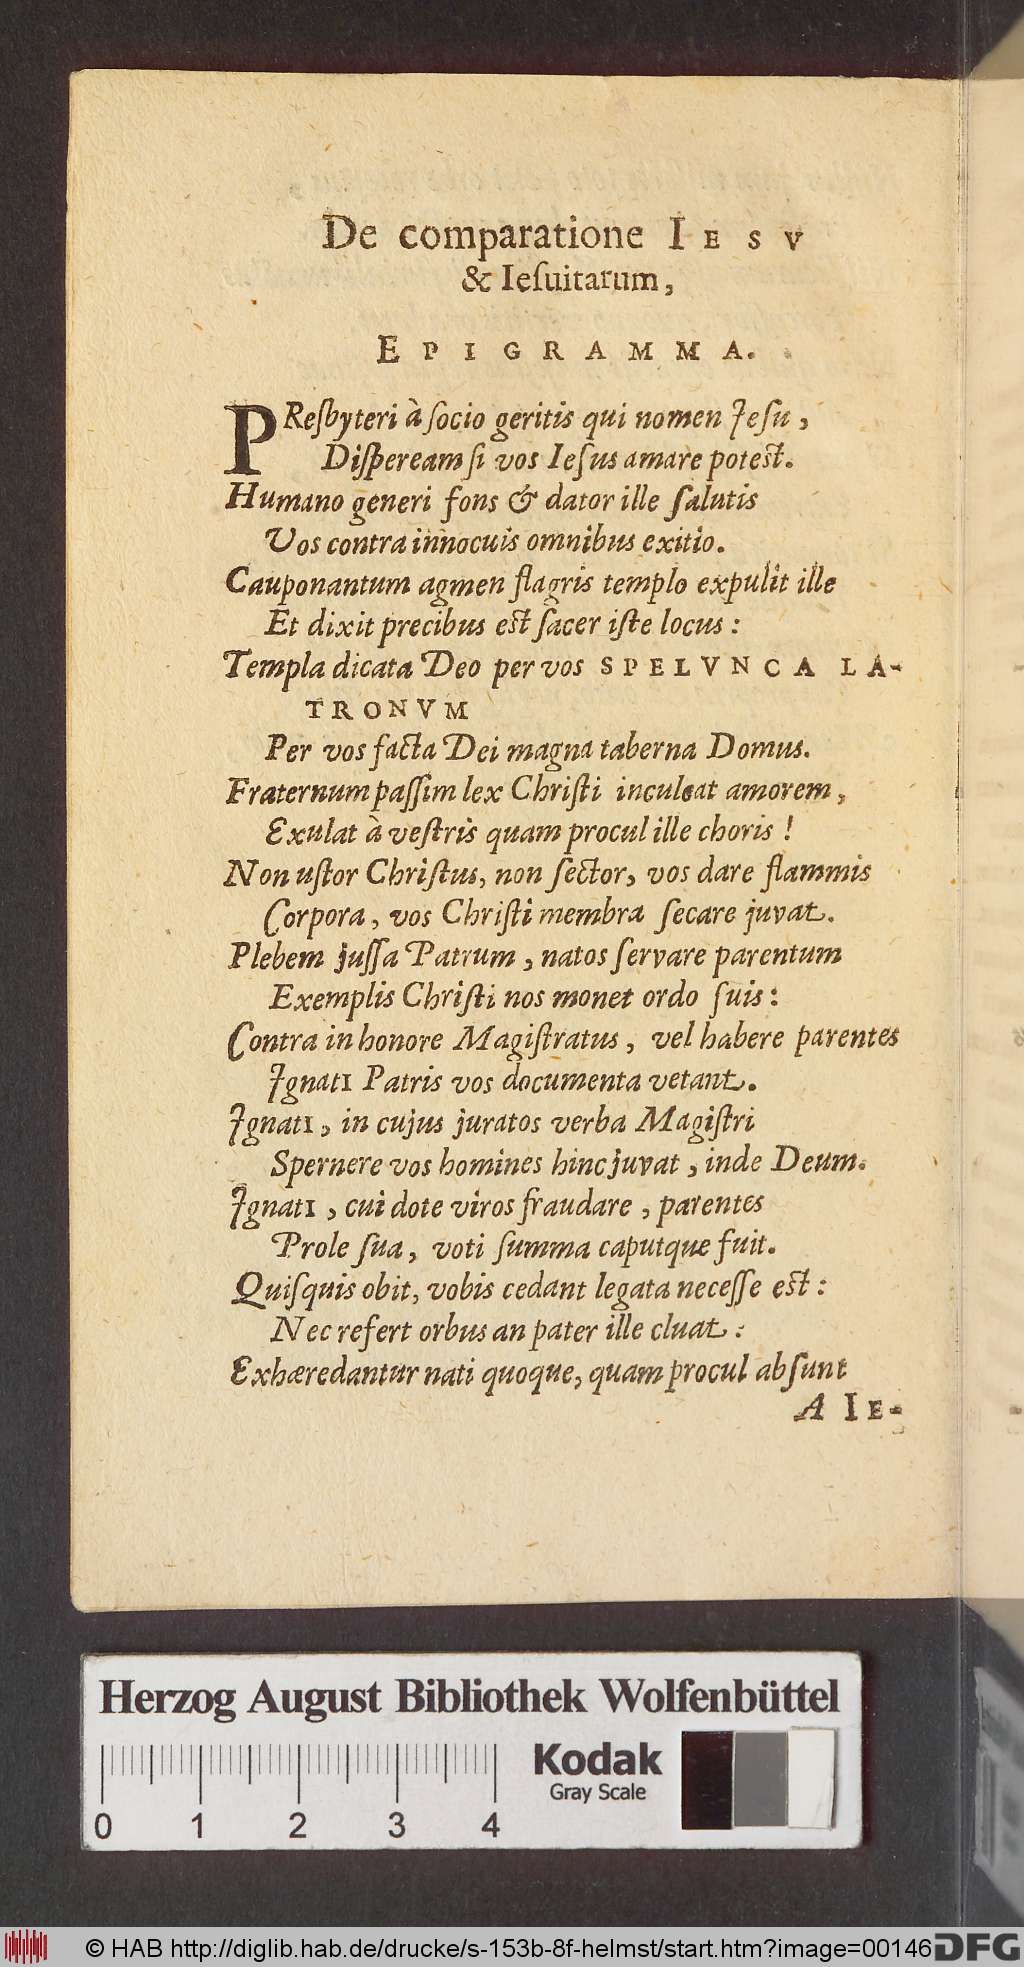 De comparatione IESV
& Ieſuitarum,
EPIGRAMMA.
PResbyteri à ſocio geritis qui nomen Jeſu,
Diſpeream ſi vos Ieſus amare poteſt.
Humano generi fons & dator ille ſalutis
Vos contra innocuis omnibus exitio.
Cauponantum agmen flagris templo expulit ille
Et dixit precibus eſt ſacer iſte locus:
Templa dicata Deo per vos SPELVNCA LA-
TRONVM
Per vos facta Dei magna taberna Domus.
Fraternum paſſim lex Chriſti inculcat amorem,
Exulat à veſtris quam procul ille choris!
Non uſtor Chriſtus, non ſector, vos dare flammis
Corpora, vos Chriſti membra ſecare juvat.
Plebem juſſa Patrum, natos ſervare parentum
Exemplis Chriſti nos monet ordo ſuis:
Contra in honore Magiſtratus, vel habere parentes
JgnatI Patris vos documenta vetant.
JgnatI, in cujus juratos verba Magiſtri
Spernere vos homines hinc juvat, inde Deum.
JgnatI, cui dote viros fraudare, parentes
Prole ſua, voti ſumma caputque fuit.
Quiſquis obit, vobis cedant legata neceſſe eſt:
Nec refert orbus an pater ille cluat:
Exhæredantur nati quoque, quam procul abſunt
A IE-
Herzog August Bibliothek Wolfenbüttel
Kodak
Gray Scale
0 1 2 3 4
© HAB http://diglib.hab.de/drucke/s-153b-8f-helmst/start.htm?image=00146
DFG